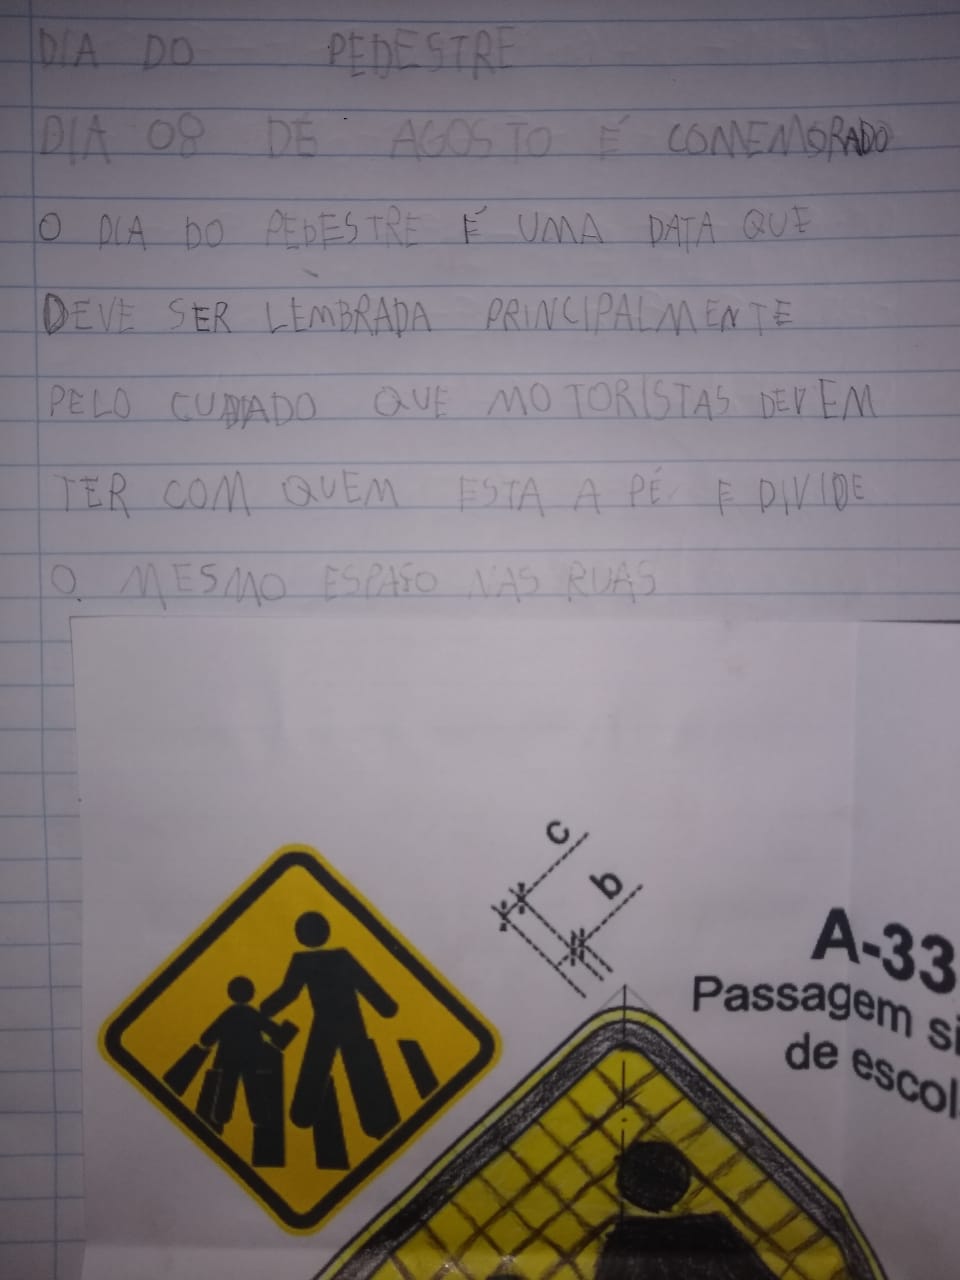 DIA DO PEDESTRE
DIA 08 DE AGOSTO É COMEMORADO
O DIA DO PEDESTRE É UMA DATA QUE
DEVE SER LEMBRADA PRINCIPALMENTE
PELO CUIDADO QUE MOTORISTAS DEVEM
TER COM QUEM ESTA A PÉ E DIVIDE
O MESMO ESPAÇO NAS RUAS
c
b
A-33
Passagem si
de escol